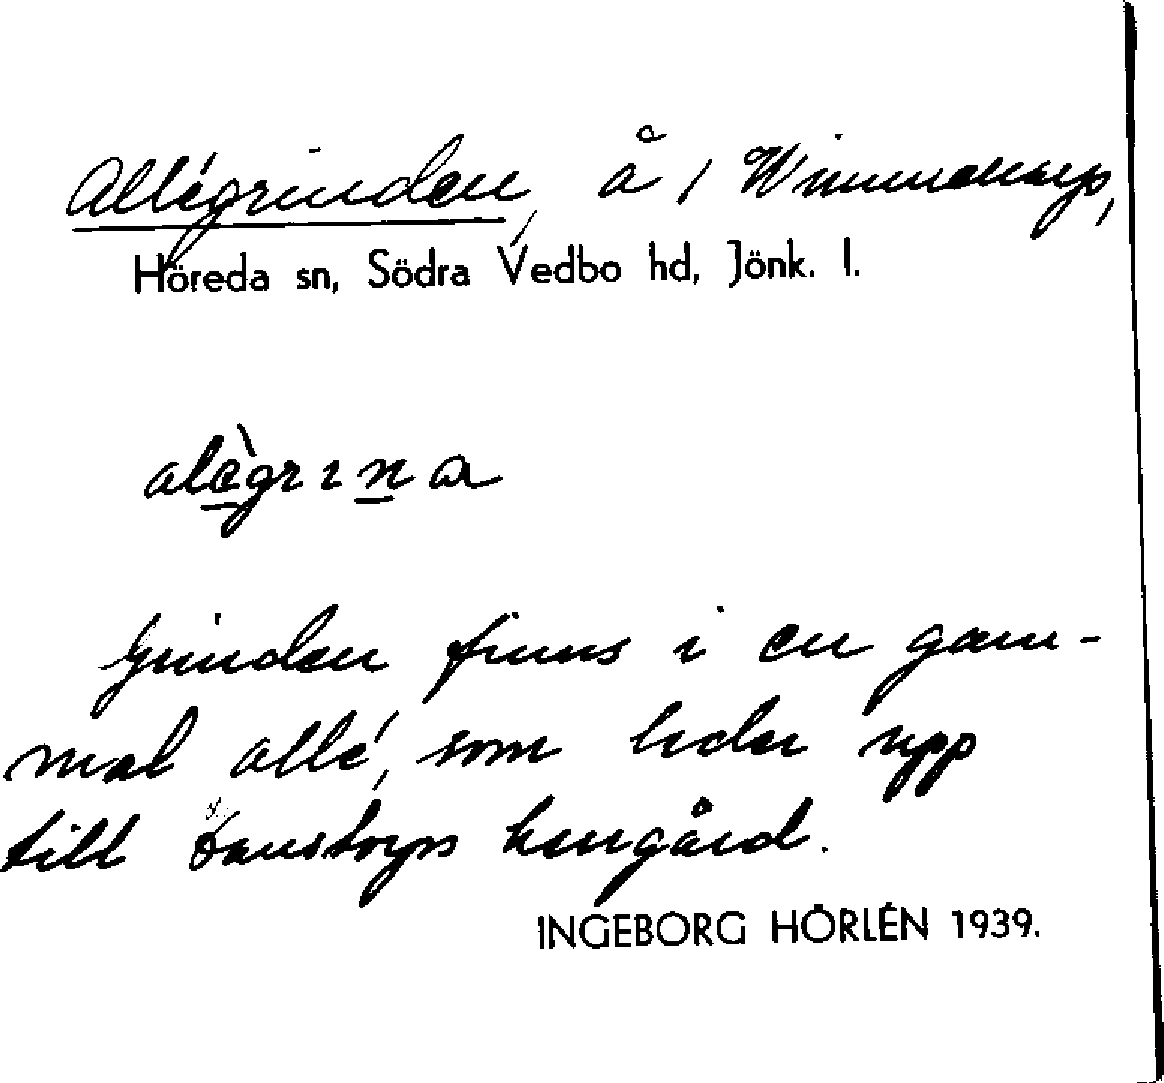 Allégrinden, å 1 Wimmenarp,
Höreda sn, Södra Vedbo hd, Jönk. l.
alègrɩna
Grinden finns i en gam-
mal allé, som leder upp
till herrgård.
INGEBORG HÖRLÉN 1939.